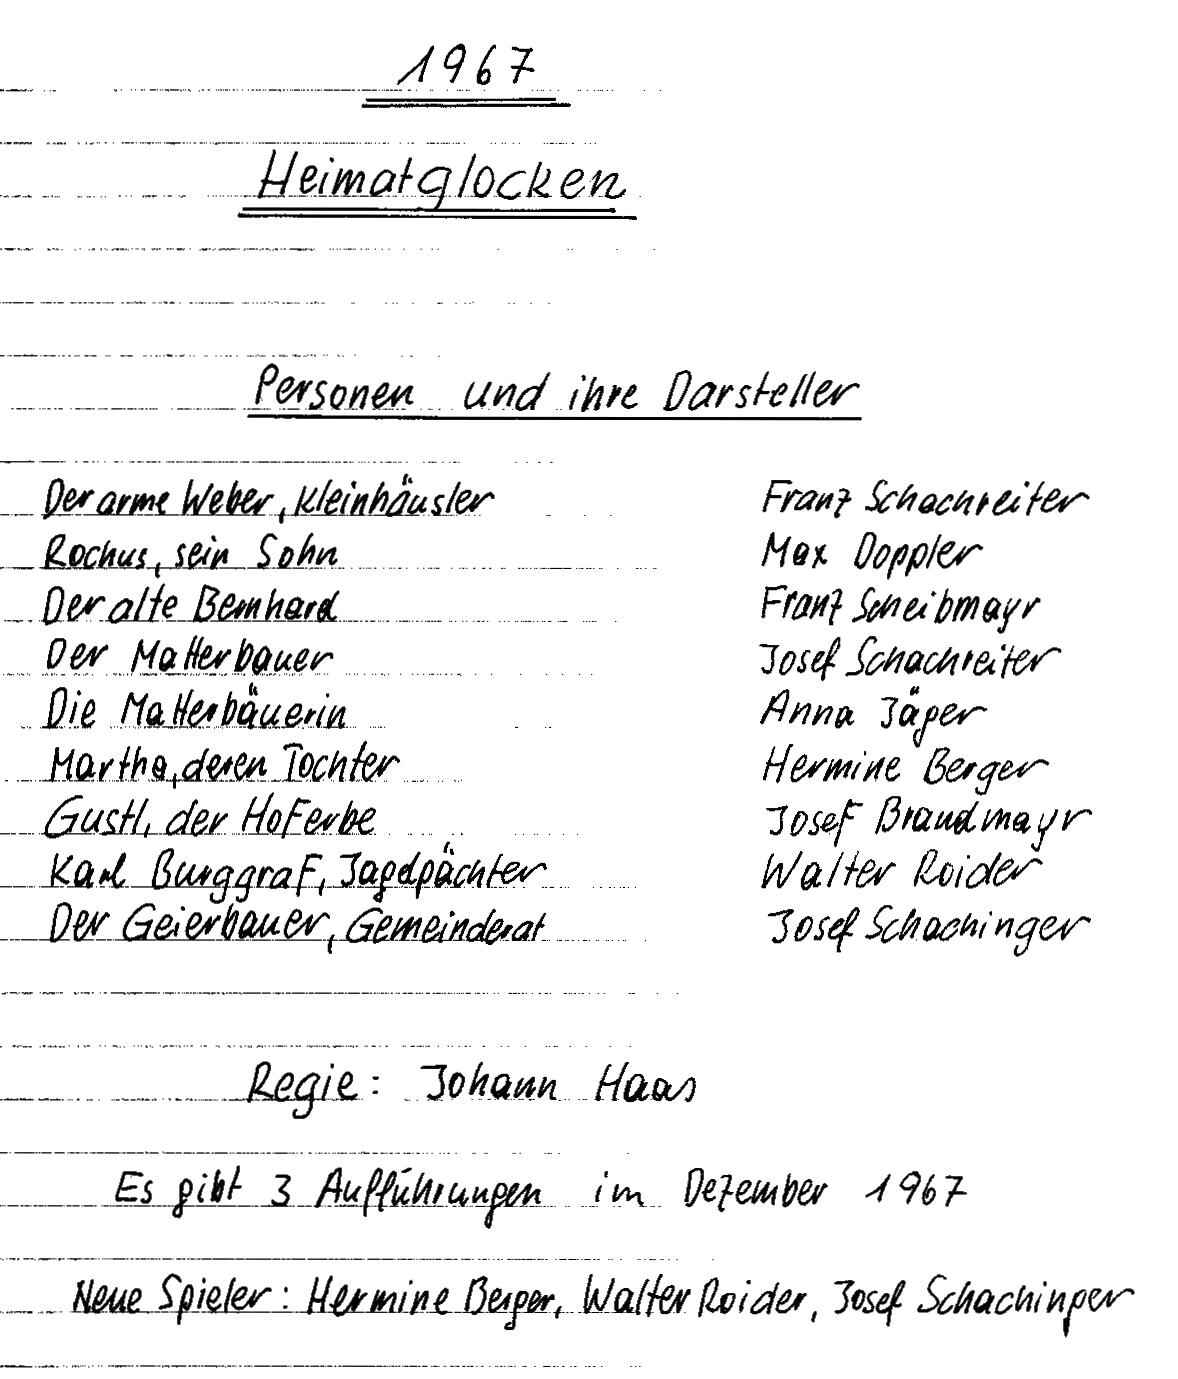 1967
Heimatglocken
Personen und ihre Darsteller
Der arme Weber, Kleinhäusler Franz Schachreiter
Rochus, sein Sohn Max Doppler
Der alte Bernhard Franz Scheibmayr
Der Matterbauer Josef Schachreiter
Die Matterbäuerin Anna Jäger
Martha, deren Tochter Hermine Berger
Gustl, der Hoferbe Josef Brandmayr
Karl Burggraf, Jagdpächter Walter Roider
Der Geierbauer, Gemeinderat Josef Schachinger
Regie: Johann Haas
Es gibt 3 Aufführungen im Dezember 1967
Neue Spieler: Hermine Berger, Walter Roider, Josef Schachinger